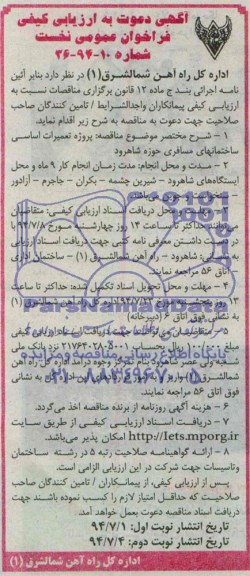 آگهی دعوت به ارزیابی کیفی
فراخوان عمومی نخست
شماره ۱۰-۹۴-۳۶
اداره کل راه آهن شمالشرق(۱) در نظر دارد بنابر آئین
نامه اجرائی بند ج ماده ۱۲ قانون برگزاری مناقصات نسبت به
ارزیابی کیفی پیمانکاران واجدالشرایط / تامین کنندگان صاحب
صلاحیت جهت دعوت به مناقصه به شرح زیر اقدام نماید.
۱ – شرح مختصر موضوع مناقصه: پروژه تعمیرات اساسی
ساختمانهای مسافری حوزه شاهرود
۲ – مدت و محل انجام: مدت زمان انجام کار ۹ ماه و محل
ایستگاه‌های شاهرود – شیرین چشمه – بکران – جاجرم – آزادور
محل دریافت اسناد ارزیابی کیفی: متقاضیان
حداکثر تا ساعت ۱۴ روز چهارشنبه مورخ ۹۴/۷/۸ با
در دست داشتن معرفی نامه کتبی جهت دریافت اسناد ارزیابی
شاهرود – راه آهن شمالشرق (۱) – ساختمان اداری
اتاق ۵۶ مراجعه نمایند.
۴ – مهلت و محل تحویل اسناد تکمیل شده: حداکثر تا ساعت
اداره کل راه آهن شمالشرق (۱)
به نشانی فوق اتاق ۶ (دبیرخانه)
۵ – متقاضیان می‌توانند جهت دریافت اسناد ارزیابی کیفی
ریال بحساب نزد بانک ملی
شمالشرق (۱) به نشانی
فوق اتاق ۵۶ مراجعه نمایند.
۶ – هزینه آگهی روزنامه از برنده مناقصه اخذ می‌گردد.
۷ – دریافت اسناد ارزیابی کیفی از طریق سایت
http://Iets.mporg.ir امکان پذیر می‌باشد.
۸ – ارائه گواهینامه صلاحیت رتبه ۵ در رشته ساختمان
وتاسیسات جهت شرکت در این ارزیابی الزامی است.
پس از ارزیابی کیفی، از پیمانکاران / تامین کنندگان صاحب
صلاحیت که حداقل امتیاز لازم را کسب نموده باشند جهت
دریافت اسناد مناقصه دعوت بعمل خواهد آمد.
تاریخ انتشار نوبت اول: ۹۴/۷/۱
تاریخ انتشار نوبت دوم: ۹۴/۷/۴
اداره کل راه آهن شمالشرق (۱)
ParsNamadData
پایگاه اطلاع رسانی مناقصه و مزایده
۰۲۱-۸۸۳۴۹۶۷۰-۵